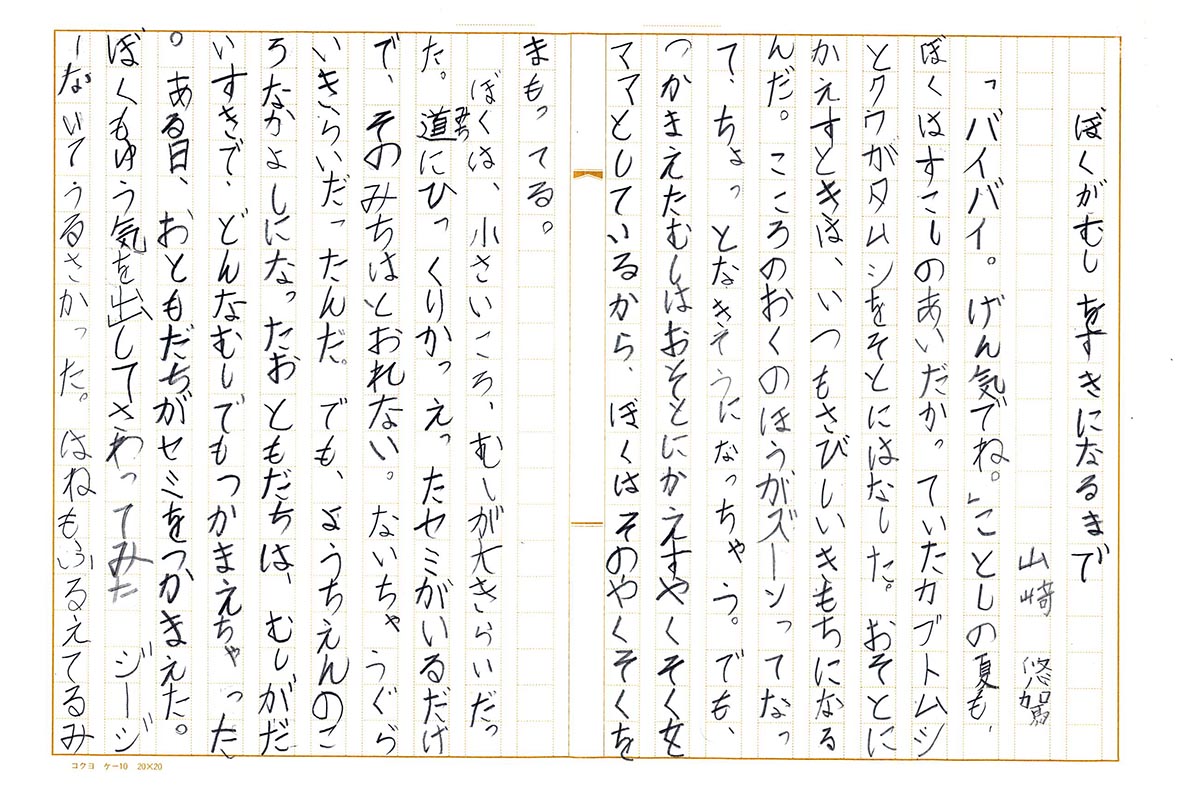 ぼくがむしをすきになるまで
山﨑 悠駕
「バイバイ。げん気でね。」ことしの夏も、
ぼくはすこしのあいだかっていたカブトムシ
とクワガタムシをそとにはなした。おそとに
かえすときは、いつもさびしいきもちになる
んだ。こころのおくのほうがズーンってなっ
て、ちょっとなきそうになっちゃう。でも、
つかまえたむしはおそとにかえすやくそくを
ママとしているから、ぼくはそのやくそくを
まもってる。
ぼくは、小さいころ、むしが大きらいだっ
た。道にひっくりかえったセミがいるだけ
みち
で、そのみちはとおれない。ないちゃうぐら
いきらいだったんだ。でも、ようちえんのこ
ろなかよしになったおともだちは、むしがだ
いすきで、どんなむしでもつかまえちゃった
。ある日、おともだちがセミをつかまえた。
ぼくもゆう気を出してさわってみた ジージ
ーないてうるさかった。はねもふるえてるみ
コクヨ ケー10 20×20